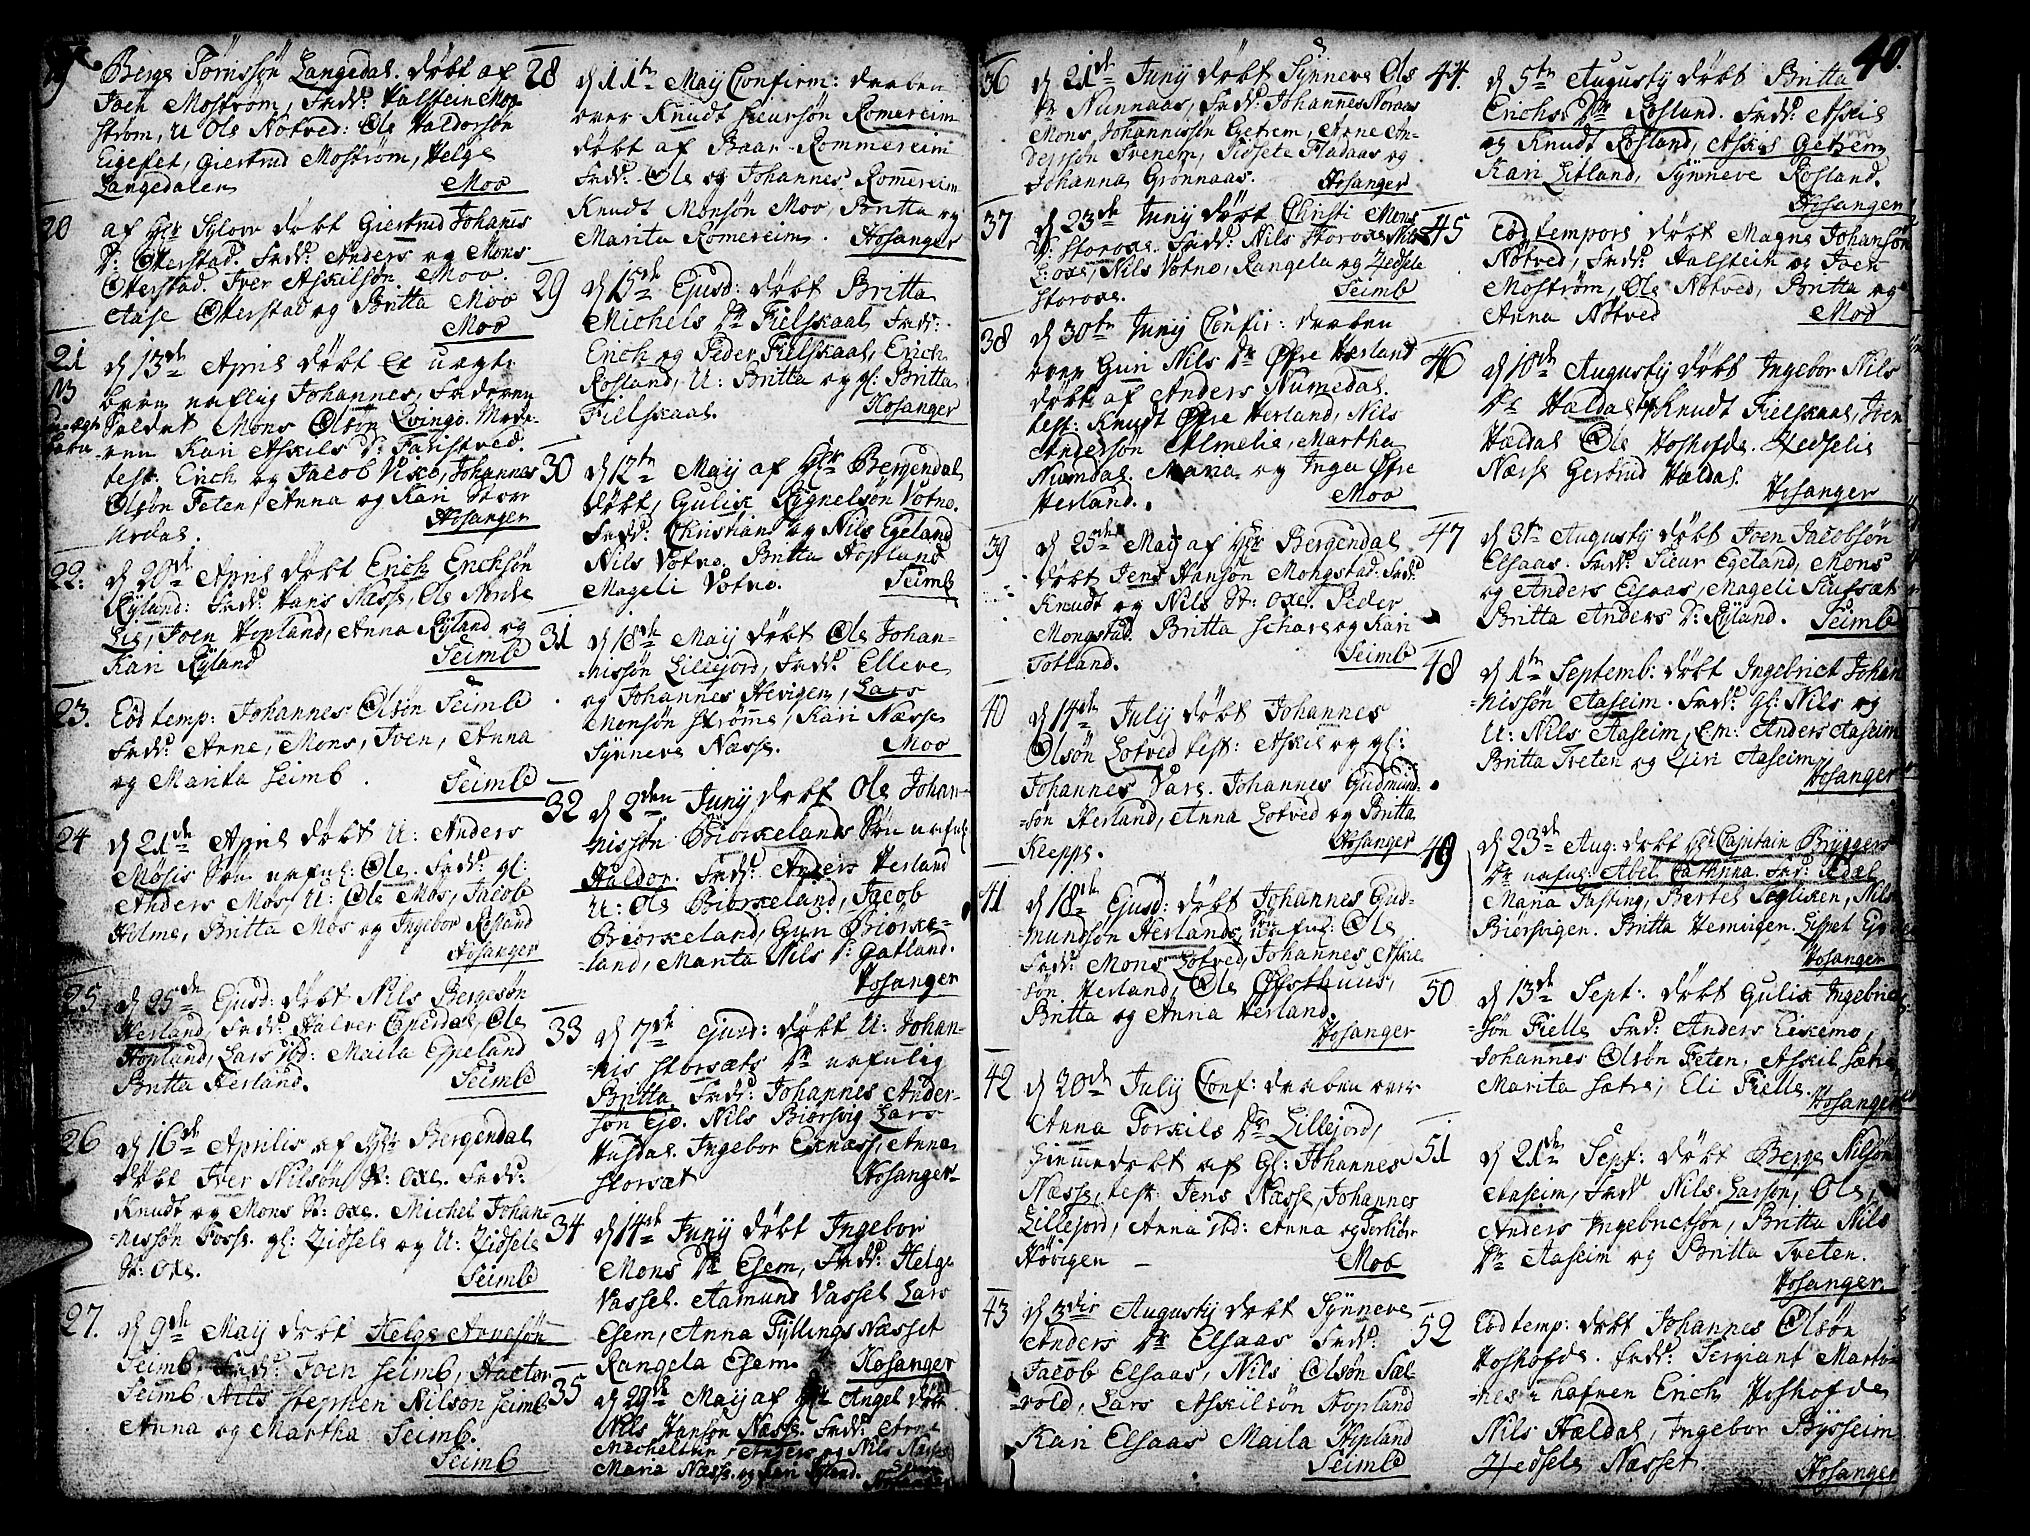 40.
19
Berge Tørrissøn Langedal. døbt af
Joen Mostrøm, Fadd: Halstein Mo-
strøm, U Ole Nøtved: Ole Haldorsøn
Eigefet, Giertrud Mostrøm, Helge
Langedalen Moo
20
af Hr døbt Giertrud Johannis
Dr: Otterstad. Fadd: Anders og Mons
Otterstad. Iver Askilsøn Moo.
Aase Otterstad og Britta Moo
Moo
21
d 13de April døbt et uegte
barn nafnlig Johannes, Faderen
Soldat Mons Olsøn Qvinge. Mode-
ren Kari Askils Dr: Faristved.
test: Erich og Jacob Johannes
Olsøn Feten, Anna og Kari Stor
Urdal. Hosanger
22.
d 20de April døbt Erich Erichsøn
Ryland: Fadd: Hans Næsse, Ole Nordre
Lie, Joen Hopland, Anna Ryland og
Kari Ryland Seimb
23.
Eod temp: Johannes Olsøn Seimb
Fadd: Arne, Mons, Joen, Anna
og Marita Seimb. Seimb
24
d 21de April døbt U: Anders
Møsis Søn nafnl: Ole. Fadd: gl:
Anders Mos, U: Ole Mos, Jacob
Holme, Britta Mos og Ingebor Rosland
Hosanger
25.
d 25de Ejusd: døbt Nils Bergesøn
Herland, Fadd: Halver Ole
Hopland, Lars ibd: Maila Espeland
Britta Herland. Seimb
26
d 16de Aprilis af Hr Bergendal
døbt Iver Nilsøn St: oxe. Fadd:
Knudt og Mons St: oxe. Michel Johan-
nissøn Fosse. gl: Zidsele og U: Zidsele
St: oxe. Seimb
27.
d 9de Maij døbt Helge Arnesøn
Seimb. Fadd: Joen Seimb, Hactor
Seimb Nils Stephen Nilsøn Seimb
Anna og Martha Seimb.
Seimb
28
d 11te Maij Confirm: daaben
over Knudt Sieursøn Romereim
døbt af Baar Rommereim
Fadd: Ole og Johannes Romereim
Knudt Monsøn Moo, Britta og
Marita Romereim. Hosanger
29
d 15de Ejusd: døbt Britta
Michels Dr Fielskaal Fadd:
Erich og Peder Fielskaal, Erich
Rosland, U: Britta og gl: Britta
Fielskaal. Hosanger
30
d 12te Maij af Hr Bergendal
døbt, Gulik Rognelsøn Votno.
Fadd: Christian og Nils Egeland
Nils Votno. Britta Hopland
Mageli Votno. Seimb
31
d 18de Maij døbt Ole Johan-
nissøn Lillejord, Fadd: Elleve
og Johannes Hevigen, Lars
Monsøn Strømme, Kari Næsse
Synneve Næsse. Moo
32
d 2den Junij døbt Ole Johan-
nissøn Biorkelands Søn nafnl:
Haldor. Fadd: Anders Herland
U: Ole Biorkeland, Jacob
Biorkeland, Guri Biorke-
land, Marita Nils Dr: Gatland.
Hosanger
33
d 7de ejusd: døbt U: Johan-
nis Storsæts Dr nafnlig
Britta Fadd: Johannes Ander-
søn Nils Biørsvig Lars
Husdal. Ingebor Eknæss, Anna
Storsæt Hosanger
34
d 14de Junij døbt Ingebor
Mons Dr Esem, Fadd: Helge
Vassel. Aamund Vassel Lars
Esem, Anna Fyllings Nasset
Rangela Esem. Hosanger
35
d 29de Maij af Hr Angel døbt
Nils Hansøn Næsse. Fadd:
Anders og Nils Næsse
Maria Næsse og Kari Ryland.
36
d 21de Junij døbt Synneve Ols
Dr Nunnaas, Fadd: Johannes Noraas
Mons Johannissøn Getrem, Arne An-
derssøn Trenem, Sidsele Fladaas og
Johanna Grønnaas. Hosanger
37
d 23de Junij døbt Christi Mons
Dr: Storoxe. Fadd: Nils Storoxe Nils
L: oxe, Nils Votno, Rangela og Zidsele
Storoxe. Seimb
38
d 30te Junij Confir: daaben
over Guri Nils Dr Øfre Herland
døbt af Anders Numedal.
test: Knudt Øfre Herland, Nils
Andersøn Almelie, Martha
Numdal. Maria og Inga Øfre
Herland. Moo
39
d 25de Maij af Hr Bergendal
døbt Jens Hansøn Mongstad. Fadd:
Knudt og Nils St: oxe. Peder
Mongstad. Britta Schare og Kari
Totland. Seimb
40
d 14de Julij døbt Johannes
Olsøn Lotved test: Askil og gl:
Johannes Vare. Johannes Gudmund-
søn Herland, Anna Lotved og Britta
Kleppe. Hosanger
41
d 18de Ejusd: døbt Johannes Gud-
mundsøn Herlands Søn nafnl: Ole
Fadd: Mons Lotved, Johannes Askil-
søn Herland, Ole Øfsthuus,
Britta og Anna Herland.
Hosanger
42
d 20de Julij Conf: daaben over
Anna Torkils Dr Lillejord,
hiemmedøbt af Gl: Johannes
Næsse, test: Jens Næsse, Johannes
Lillejord, Anna ibd: Anna og Torbiør
Høvigen Moo
43
d 3die Augustij døbt Synneve
Anders Dr Elsaas Fadd:
Jacob Elsaas, Nils Olsøn Sæl-
vold, Lars Askilsøn Hopland
Kari Elsaas Maila Hopland
Seimb
44.
d 5te Augustij døbt Britta
Erichs Dr Rosland. Fadd: Askil
og Knudt Rosland, Askil Getrem
Kari Litland, Synneve Rosland.
Hosanger
45
Eod tempori døbt Magne Johansøn
Nøtved, Fadd: Halstein og Joen
Mostrøm, Ole Nøtved, Britta og
Anna Nøtved Moo
46
d 10de Augustij døbt Ingebor Nils
Dr Haldal, Knudt Fielskaal, Joen
Haldal Ole Hoshofde. Zedselie
Næsse Gertrud Haldal.
Hosanger
47
d 3te Augustij døbt Joen Jacobsøn
Elsaas. Fadd: Sieur Egeland, Mons
og Anders Elsaas, Mageli
Britta Anders Dr: Ryland. Seimb
48
d 1te Septemb: døbt Ingebrict Johan-
nissøn Aaseim. Fadd: Gl: Nils og
U: Nils Aaseim, Em: Anders Aaseim
Britta Tveten og Ziri Aaseim
Hosanger
49
d 23de Aug: døbt Hr Capitain Bryggers
Dr nafnl: Abel Cathrina. Fad:
Maria Fasting, Bertel Nils
Biørsvigen. Britta Hemvigen. Lisbet
Hosanger
50
d 13de Sept: døbt Gulik Ingebricht-
søn Fielle Fadd: Anders Eikemo,
Johannes Olsøn Feten, Askil Sætre
Marita Sætre, Eli Fielle.
Hosanger
51
d 21de Sept: døbt Berge Nilsøn
Aaseim, Fadd Nils Larsøn, Ole,
Anders Ingebrictsøn, Britta Nils
Dr Aaseim og Britta Tveten.
Hosanger
52
Eod temp: døbt Johannes Olsøn
Hoshofde. Fadd: Sergiant Marti-
nes i hafnen Erich Hoshofde
Nils Hældal, Ingebor Bysseim
Zedsele Næsset. Hosanger